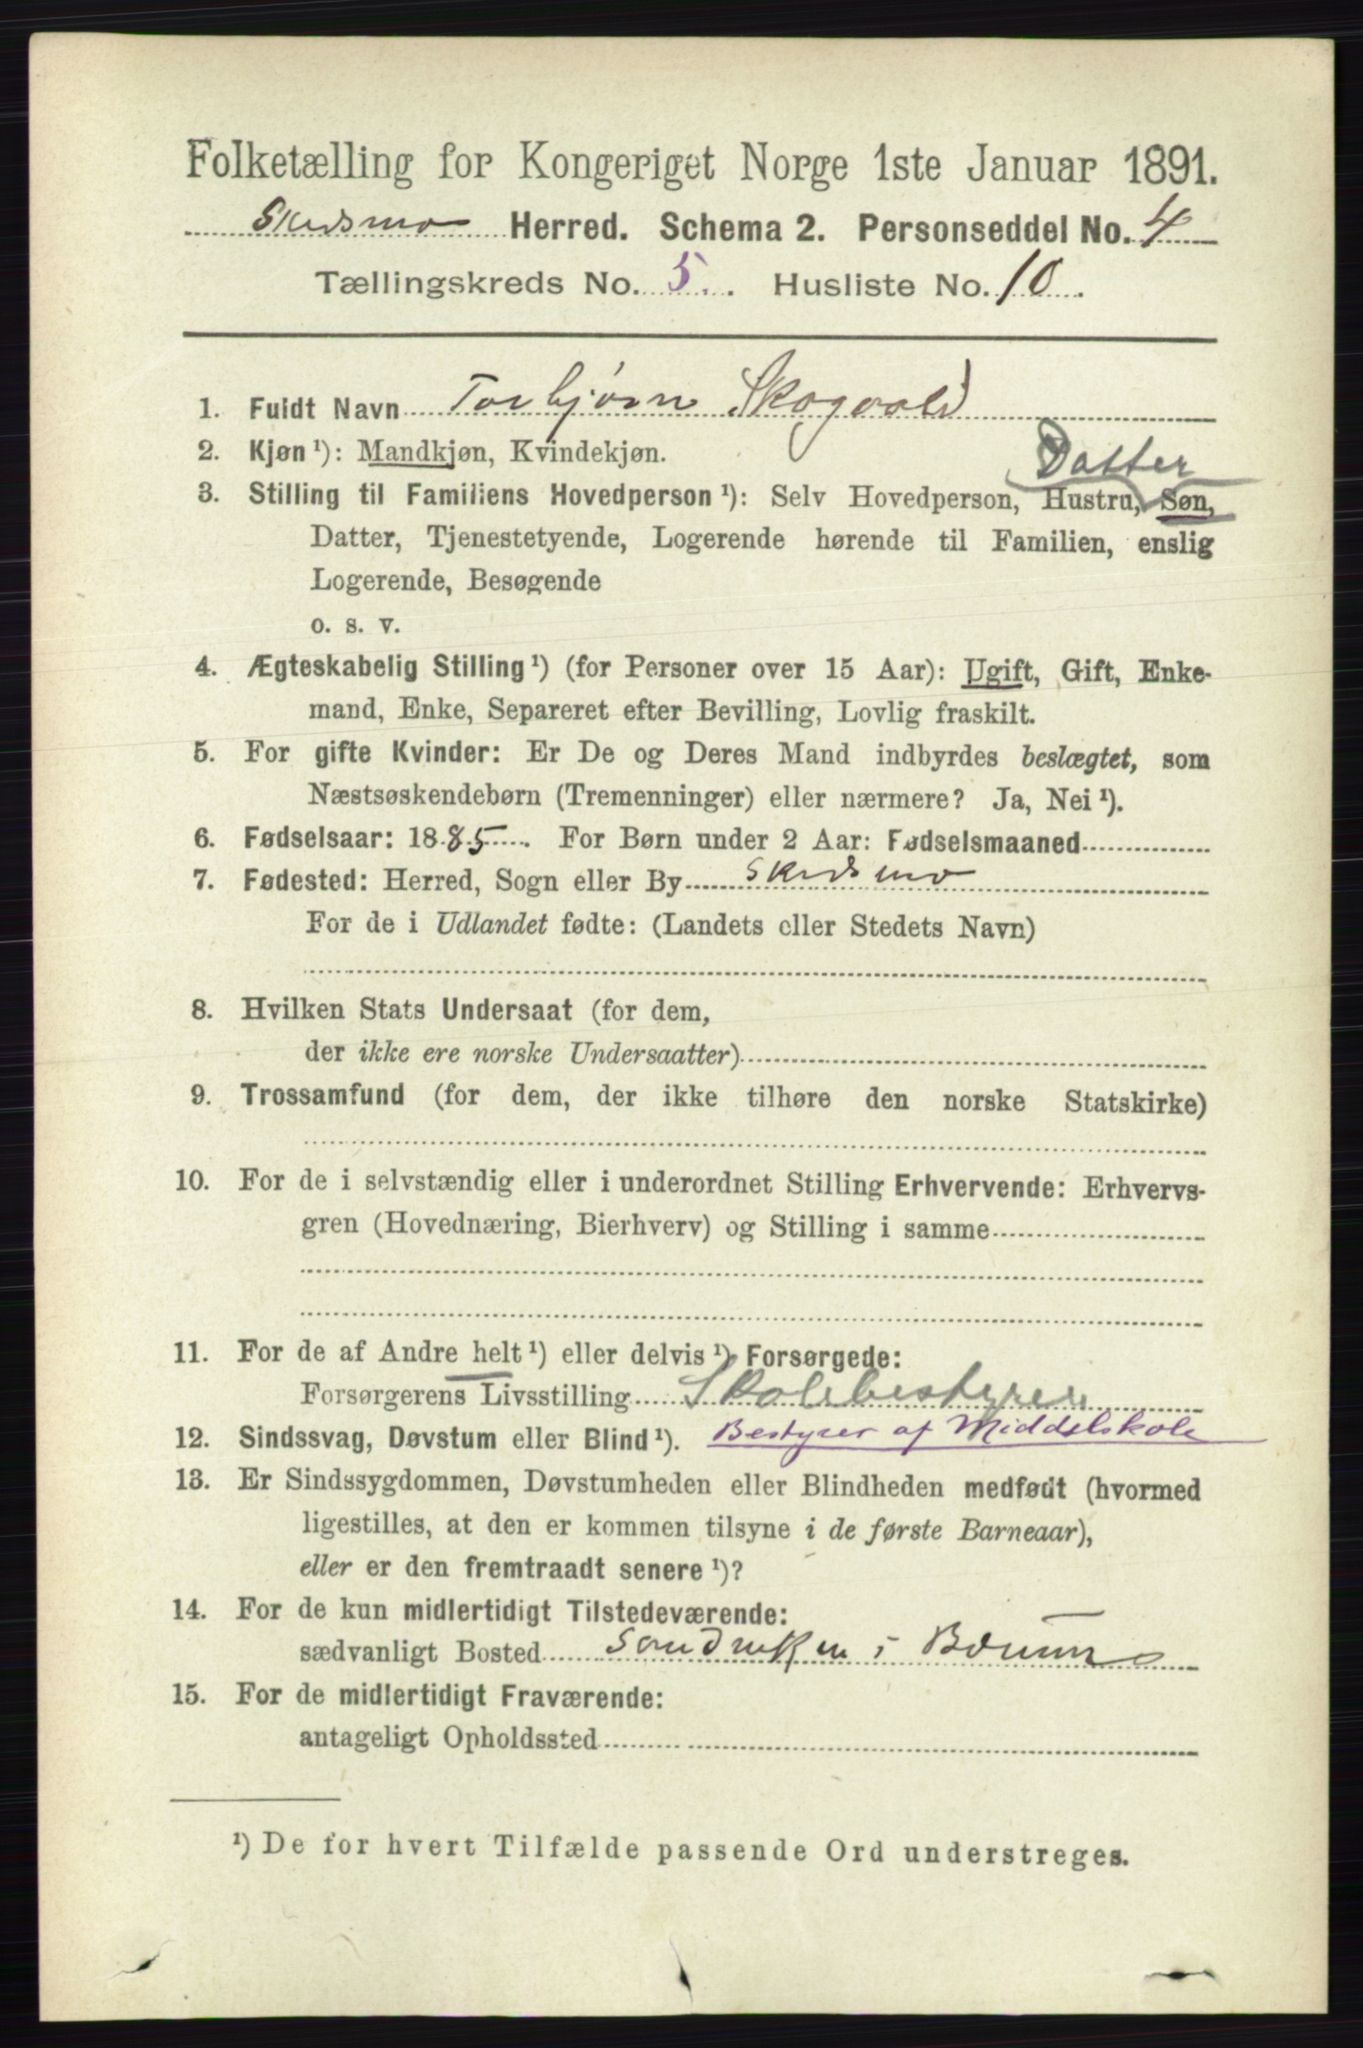 Folketælling for Kongeriget Norge 1ste Januar 1891.
Skedsmo Herred. Schema 2. Personseddel No. 4
Tællingskreds No. 5. Husliste No. 10.
1. Fuldt Navn Torbjørn Skogvold
2. Kjøn ¹): Mandkjøn, Kvindekjøn.
Datter
3. Stilling til Familiens Hovedperson ¹): Selv Hovedperson, Hustru, Søn,
Datter, Tjenestetyende, Logerende hørende til Familien, enslig
Logerende, Besøgende
o. s. v.
4. Ægteskabelig Stilling ¹) (for Personer over 15 Aar): Ugift, Gift, Enke-
mand, Enke, Separeret efter Bevilling, Lovlig fraskilt.
5. For gifte Kvinder: Er De og Deres Mand indbyrdes beslægtet, som
Næstsøskendebørn (Tremenninger) eller nærmere? Ja, Nei ¹).
6. Fødselsaar: 1885. For Børn under 2 Aar: Fødselsmaaned
7. Fødested: Herred, Sogn eller By Skedsmo
For de i Udlandet fødte: (Landets eller Stedets Navn)
8. Hvilken Stats Undersaat (for dem,
der ikke ere norske Undersaatter)
9. Trossamfund (for dem, der ikke tilhøre den norske Statskirke)
10. For de i selvstændig eller i underordnet Stilling Erhvervende: Erhvervs-
gren (Hovednæring, Bierhverv) og Stilling i samme
11. For de af Andre helt ¹) eller delvis ¹) Forsørgede:
Forsørgerens Livsstilling Skolebestyrer
12. Sindssvag, Døvstum eller Blind ¹). Bestyrer af Middelskole
13. Er Sindssygdommen, Døvstumheden eller Blindheden medfødt (hvormed
ligestilles, at den er kommen tilsyne i de første Barneaar),
eller er den fremtraadt senere ¹)?
14. For de kun midlertidigt Tilstedeværende:
sædvanligt Bosted i Bærum
15. For de midlertidigt Fraværende:
antageligt Opholdssted
¹) De for hvert Tilfælde passende Ord understreges.